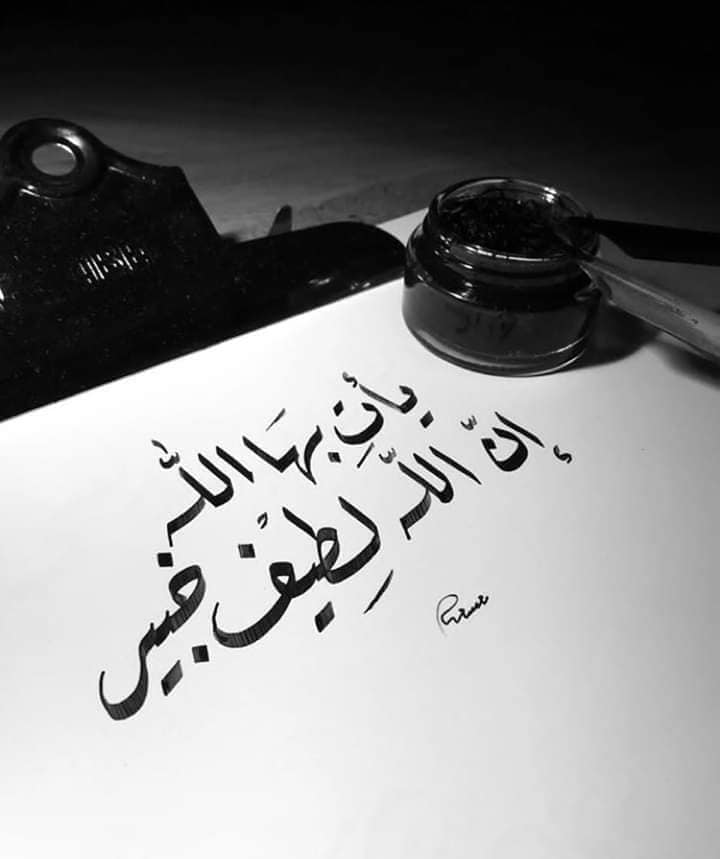 يأتِ بهَا اللّه
إنّ اللّه لطِيفٌ خبير